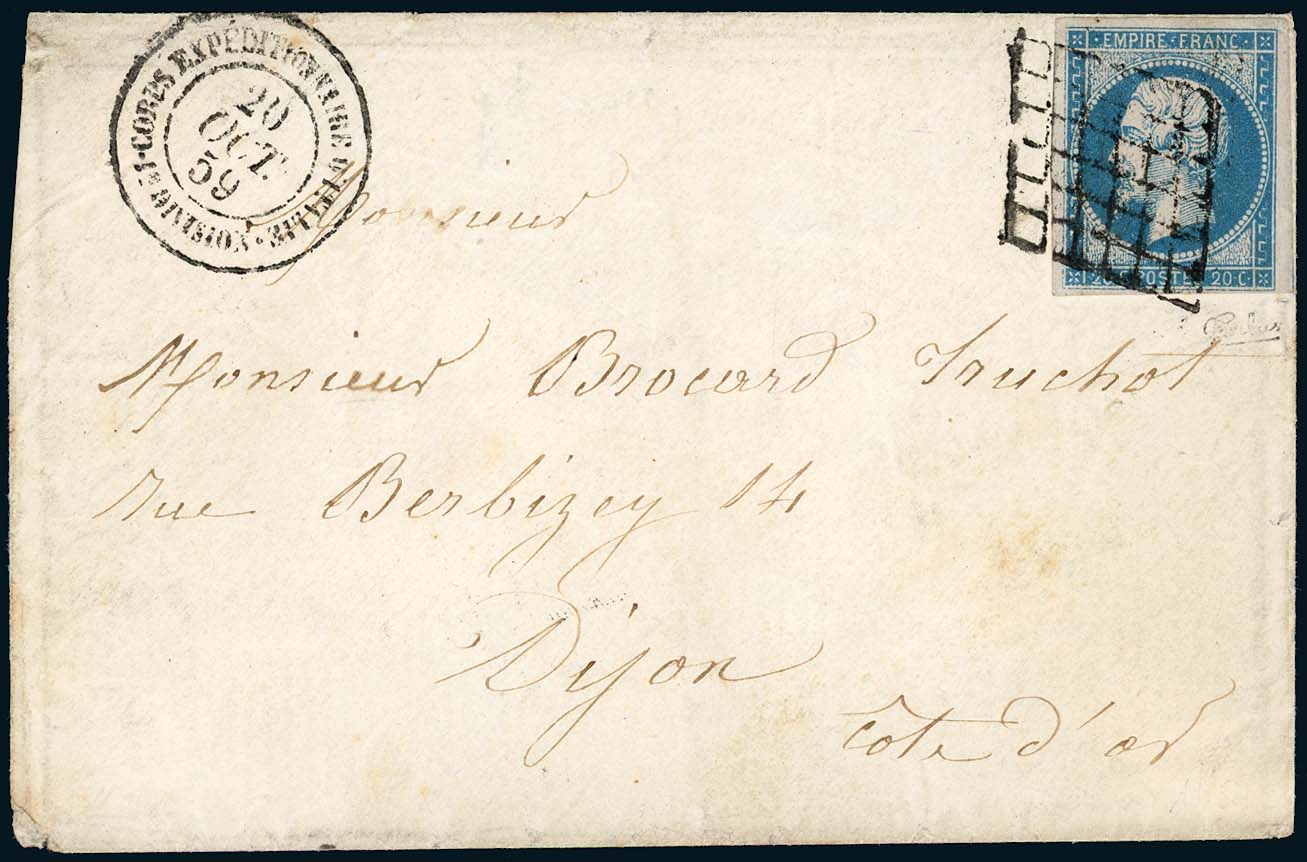 CORPS EXPÉDITIONNAIRE D'ITALIE
20
OCT.
59
EMPIRE · FRANC ·
20 C · POSTE · 20 C ·
Monsieur
Monsieur Brocard Truchot
rue Berbizey 14
Dijon
Côte d'or